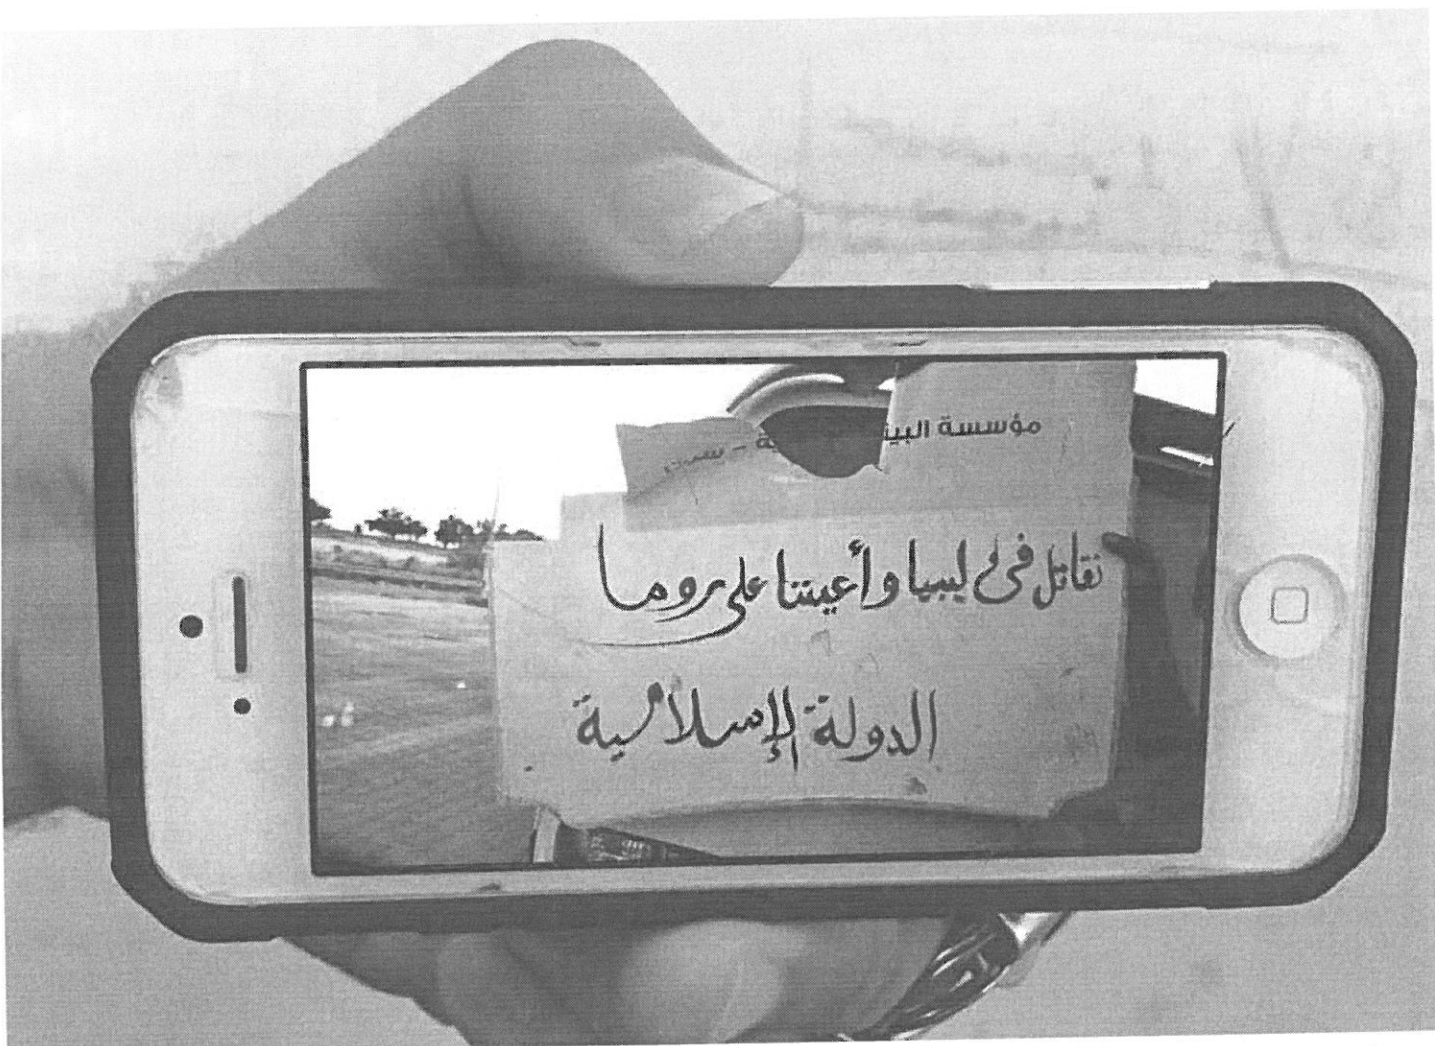 مؤسسة
نقاتل في ليبيا وأعيننا على روما
الدولة الإسلامية